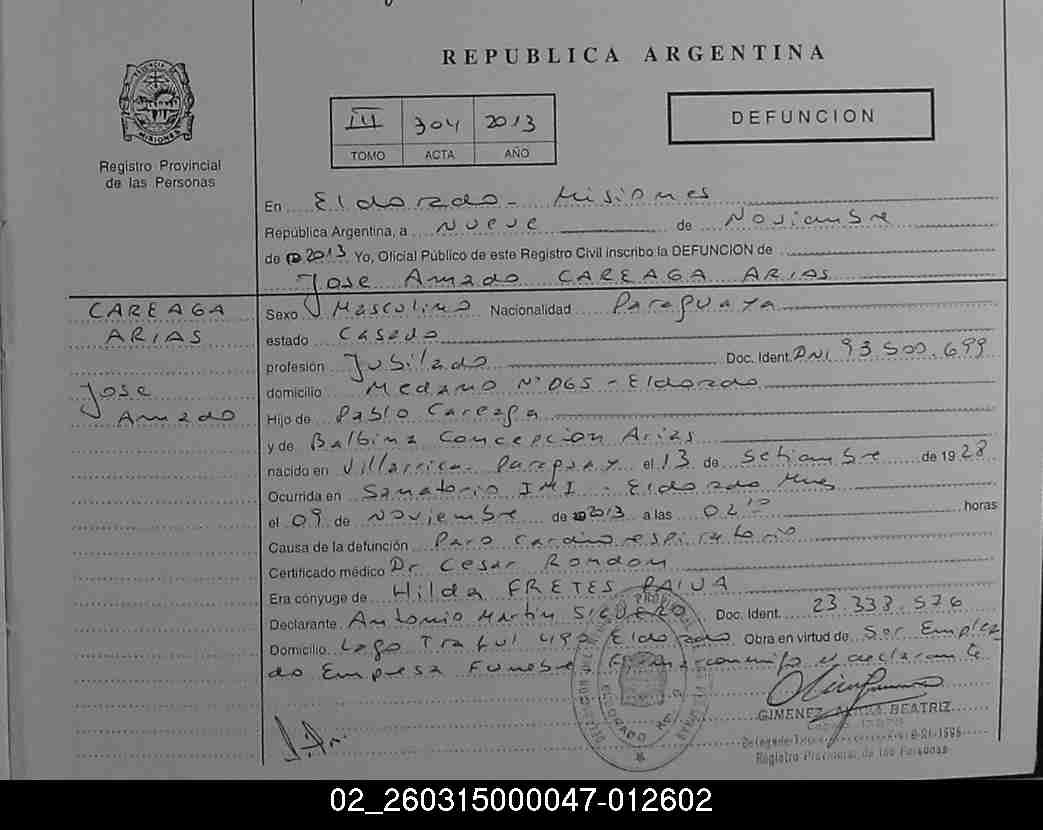 REPUBLICA ARGENTINA
III 304 2013
TOMO ACTA AÑO
DEFUNCION
PROVINCIA DE MISIONES
Registro Provincial
de las Personas
En Eldorado - Misiones
República Argentina, a Nueve de Noviembre
de 2013 Yo, Oficial Público de este Registro Civil inscribo la DEFUNCION de
Jose Amado CAREAGA ARIAS
CAREAGA
ARIAS
Jose
Amado
Sexo Masculino Nacionalidad Paraguaya
estado Casado
profesión Jubilado Doc. Ident. DNI 93.500.699
domicilio Medano Nº 065 - Eldorado
Hijo de Pablo Careaga
y de Balbina Concepcion Arias
nacido en Villarrica - Paraguay el 13 de Setiembre de 1928
Ocurrida en Sanatorio IMI - Eldorado Mnes
el 09 de Noviembre de 2013 a las 02 10 horas
Causa de la defunción Paro Cardiorespiratorio
Certificado médico Dr Cesar Rondon
Era cónyuge de Hilda FRETES PAIVA
Declarante Antonio Martin Doc. Ident. 23.333.576
Domicilio Lago Traful 490 Eldorado Obra en virtud de Ser Emplea
do Empresa Funebre Firma conmigo el declarante
GIMENEZ BEATRIZ
Registro Provincial de las Personas
02_260315000047-012602